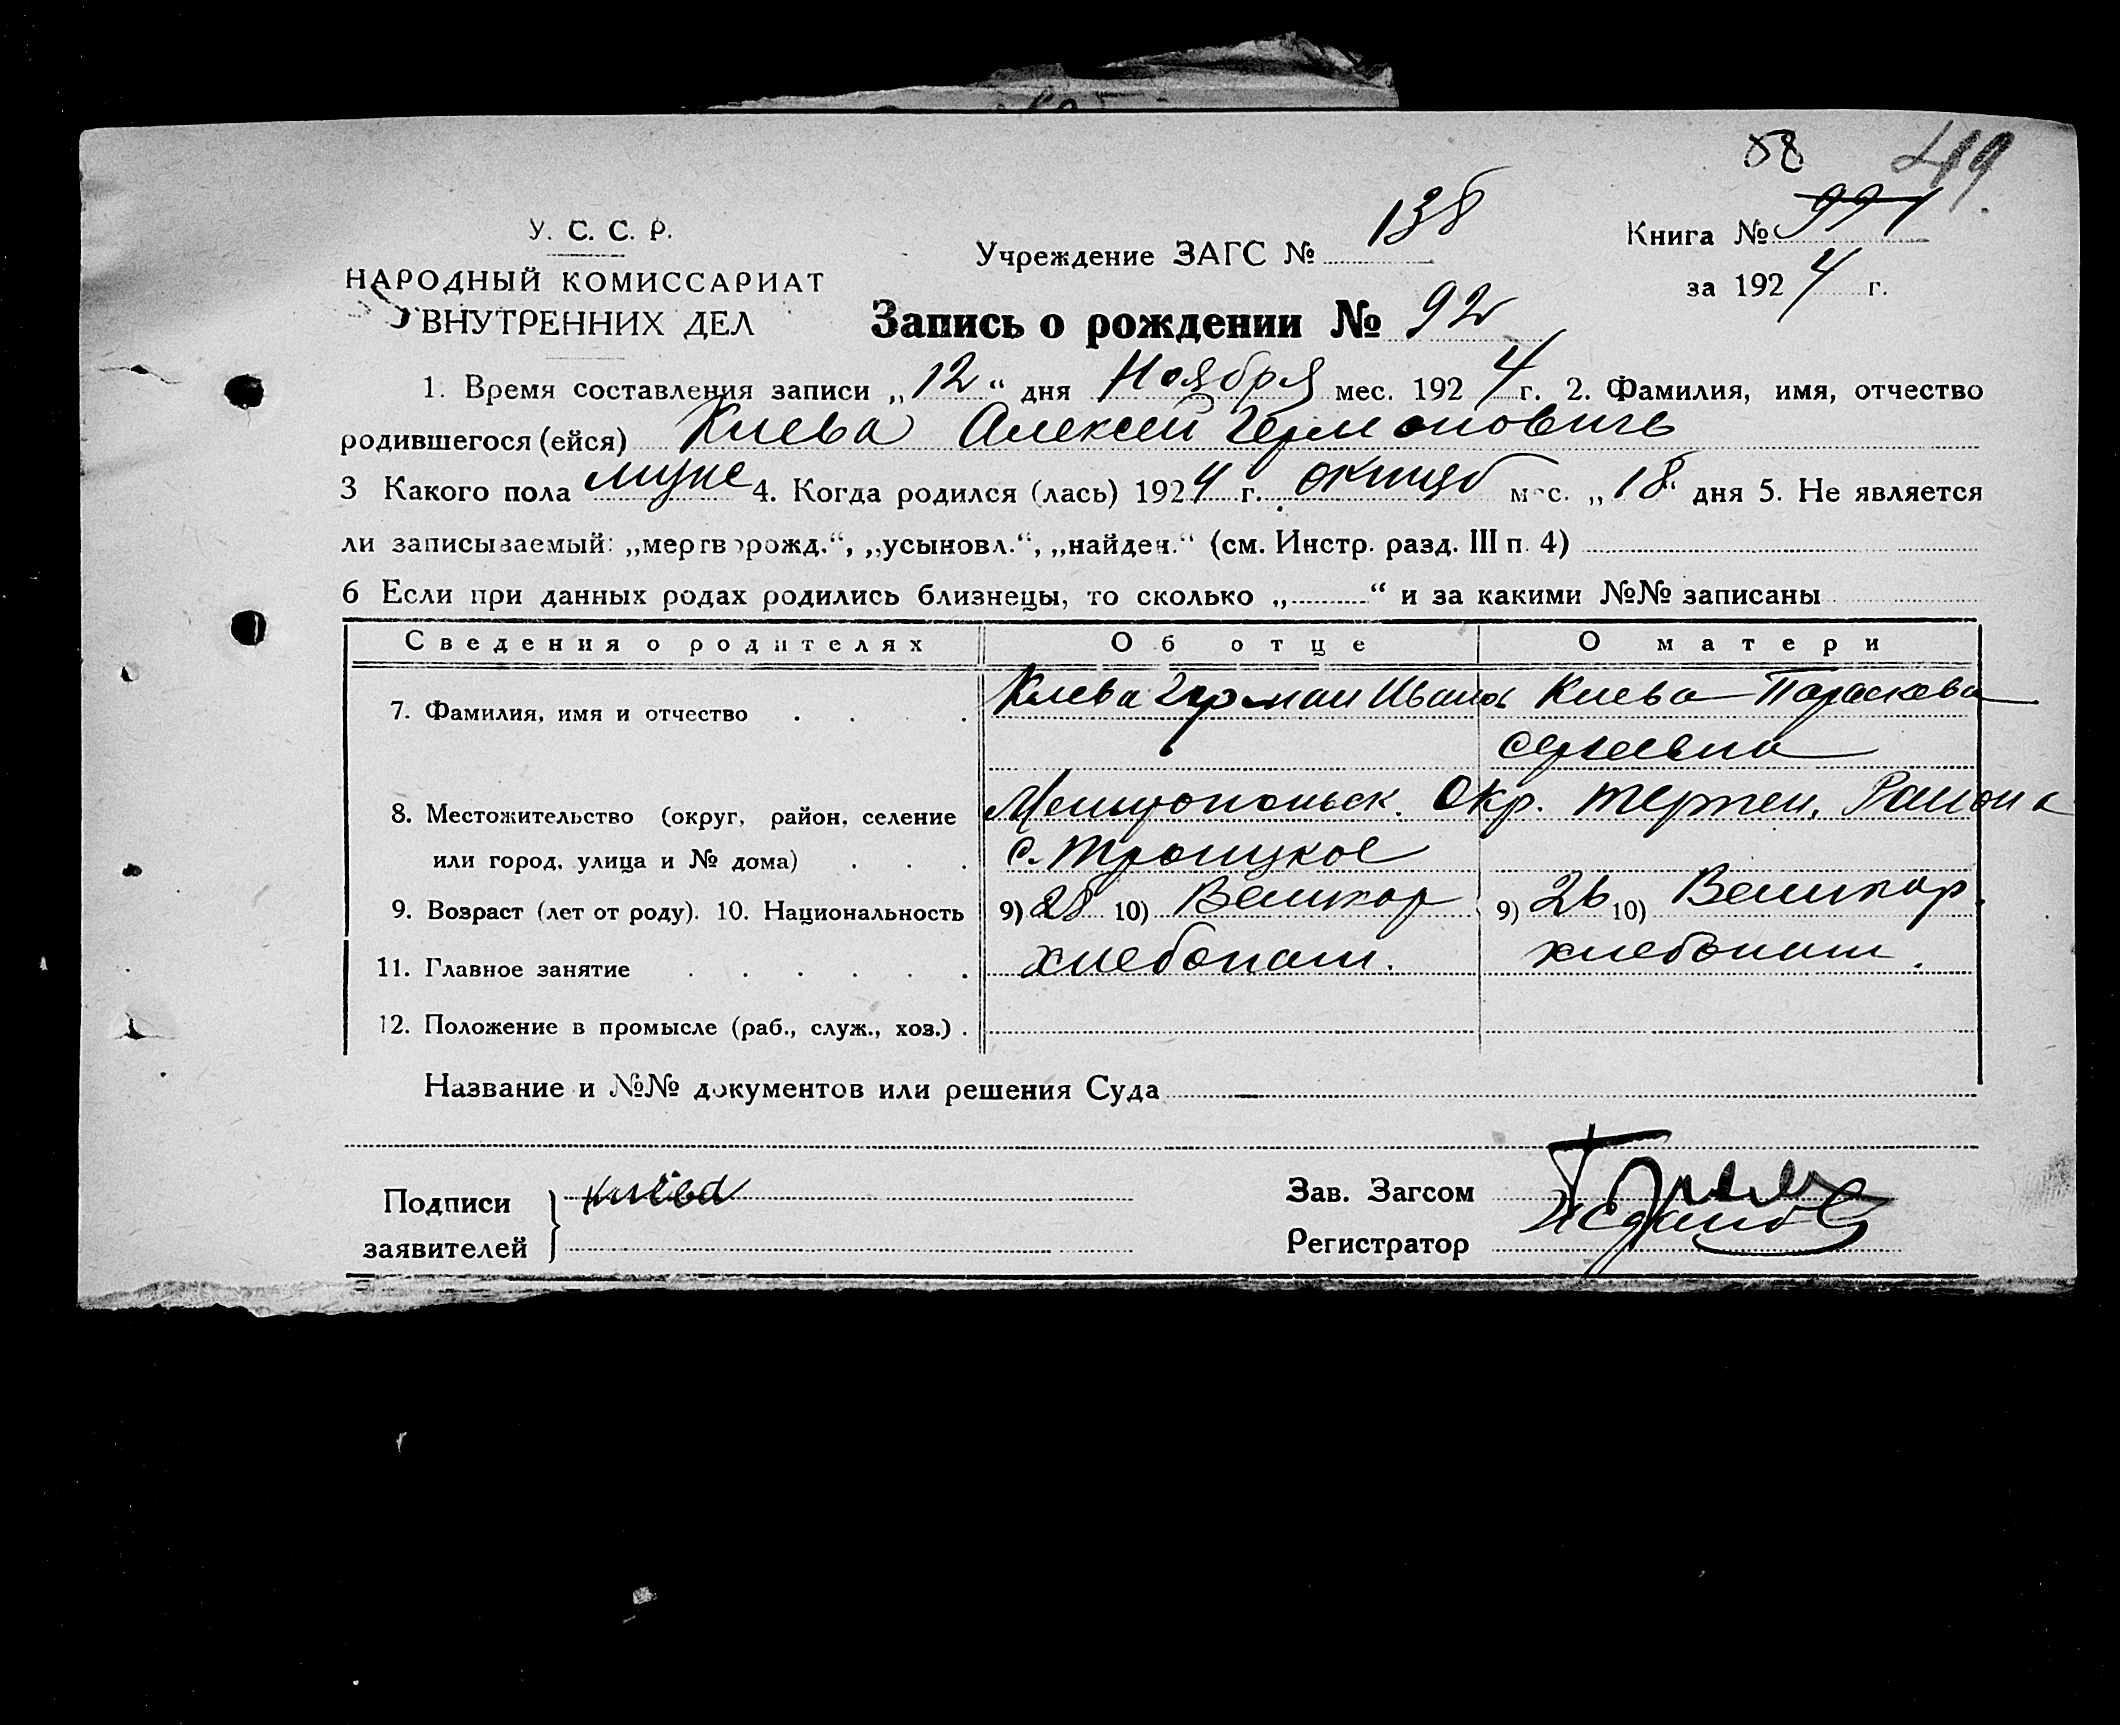 58 419
У. С. С. Р.
Учреждение ЗАГС № 138
Книга № 991
НАРОДНЫЙ КОМИССАРИАТ
за 1924 г.
ВНУТРЕННИХ ДЕЛ
Запись о рождении № 92
1. Время составления записи „12“ дня Ноября мес. 1924 г. 2. Фамилия, имя, отчество
родившегося (ейся) Клева Алексей Германовичь
3 Какого пола муже 4. Когда родился (лась) 1924 г. октяб мес. „18“ дня 5. Не является
ли записываемый: „мертворожд.“, „усыновл.“, „найден.“ (см. Инстр. разд. III п. 4)
6 Если при данных родах родились близнецы, то сколько „ “ и за какими №№ записаны
Сведения о родителях Об отце О матери
7. Фамилия, имя и отчество Клева Герман Иванов Клева Параскева
Сергеевна
8. Местожительство (округ, район, селение Мелитопольск. Окр. Терпен. Района
или город, улица и № дома) с. Троицкое
9. Возраст (лет от роду). 10. Национальность 9) 28 10) Великор 9) 26 10) Великор.
11. Главное занятие хлебопаш. хлебопаш.
12. Положение в промысле (раб., служ., хоз.)
Название и №№ документов или решения Суда
Подписи Клева Зав. Загсом
заявителей Регистратор